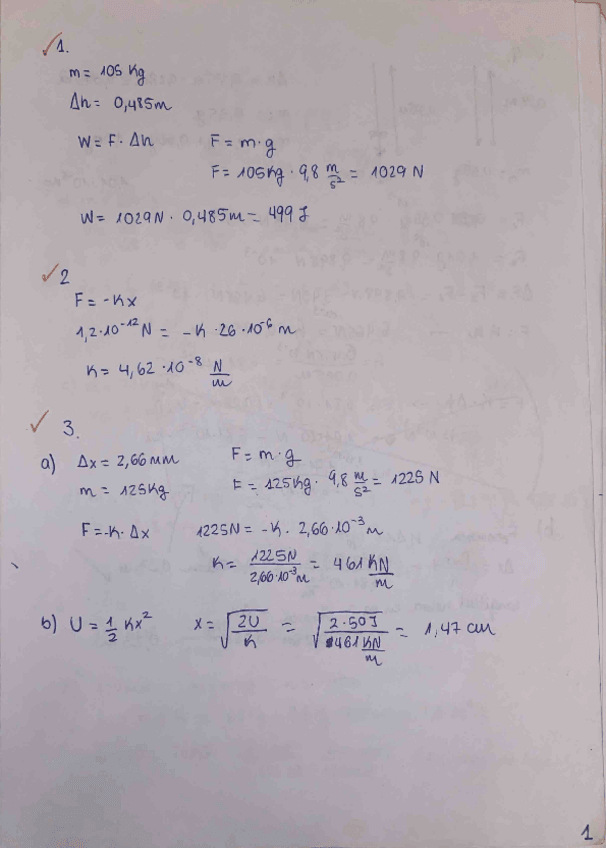 ✓1.
m = 105 Kg
Δh = 0,485m
W = F · Δh F = m · g
F = 105Kg · 9,8 m/s² = 1029 N
W = 1029N · 0,485m = 499 J
✓2
F = -Kx
1,2·10⁻¹²N = -K · 26·10⁻⁶ m
K = 4,62·10⁻⁸ N/m
✓ 3.
a) Δx = 2,66 mm F = m · g
m = 125Kg F = 125Kg · 9,8 m/s² = 1225 N
F = -K · Δx 1225N = -K · 2,66·10⁻³ m
K = 1225N / 2,66·10⁻³ m = 461 KN/m
b) U = 1/2 Kx² x = √(2U/K) = √(2·50J / 461 KN/m) = 1,47 cm
1